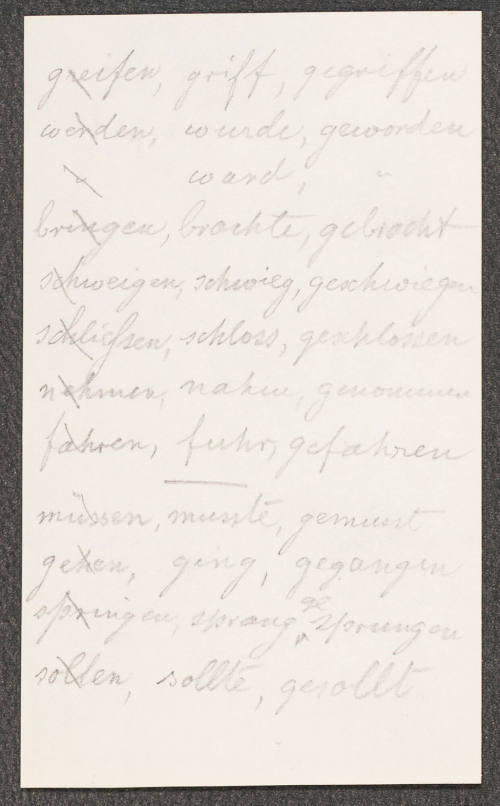 greifen, griff, gegriffen
werden, wurde, geworden
" ward, "
bringen, brachte, gebracht
schweigen, schwieg, geschwiegen
schließen, schloss, geschlossen
nehmen, nahm, genommen
fahren, fuhr, gefahren
müssen, musste, gemusst
gehen, ging, gegangen
springen, sprang, gesprungen
sollen, sollte, gesollt